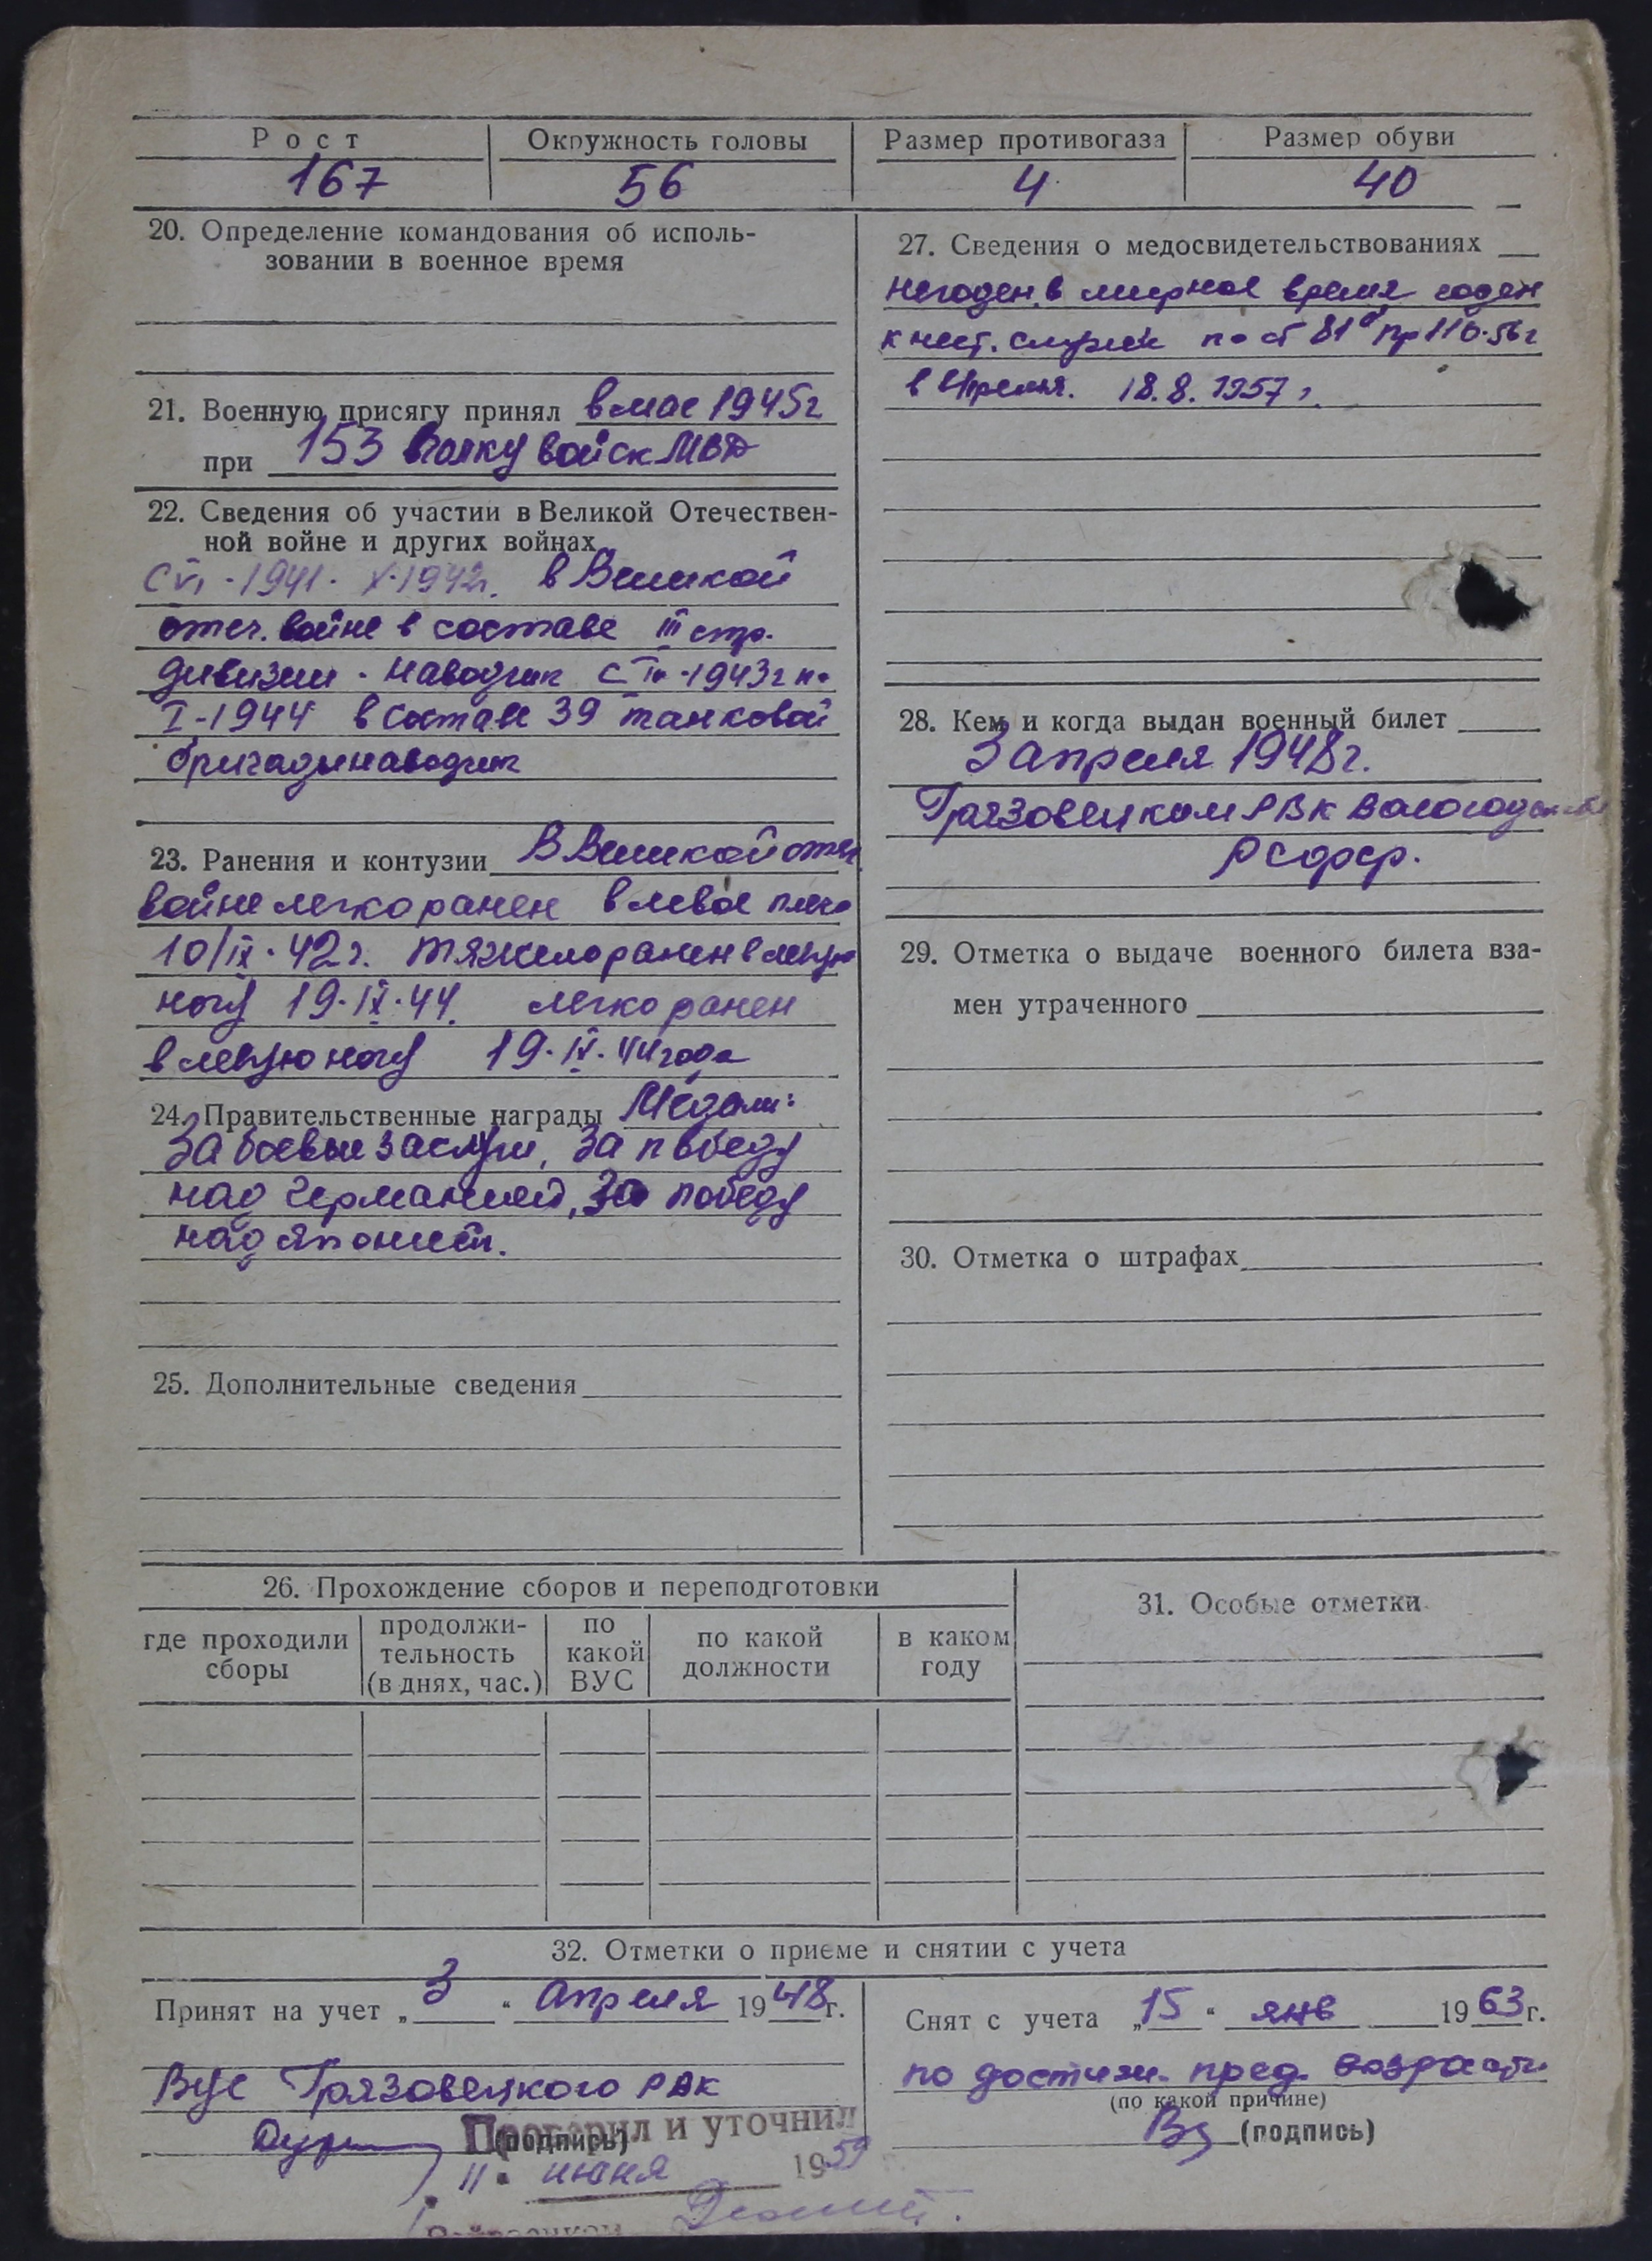 Рост
Окружность головы
Размер противогаза
Размер обуви
167
56
4
40
20. Определение командования об исполь-
зовании в военное время
21. Военную присягу принял в мае 1945г
при 153 полку войск МВД
22. Сведения об участии в Великой Отечествен-
ной войне и других войнах
С VI-1941. X-1942г. в Великой
отеч. войне в составе III стр.
дивизии - наводчик с 1943г по
I-1944 в составе 39 танковой
бригады наводчик
23. Ранения и контузии В Великой отеч
войне легко ранен в левое плечо
10/IX-42г. тяжело ранен в левую
ногу 19.IV.44. легко ранен
в левую ногу 19.IV.44 года
24. Правительственные награды Медали:
За боевые заслуги, За победу
над Германией, За победу
над Японией.
25. Дополнительные сведения
27. Сведения о медосвидетельствованиях
Негоден в мирное время годен
к нест. службе по ст 81 пр 110-56г
18.8.1957г.
28. Кем и когда выдан военный билет
3 апреля 1948г.
Грязовецким РВК Вологодской
РСФСР.
29. Отметка о выдаче военного билета вза-
мен утраченного
30. Отметка о штрафах
26. Прохождение сборов и переподготовки
где проходили сборы
продолжи-
тельность
(в днях, час.)
по какой ВУС
по какой должности
в каком году
31. Особые отметки
32. Отметки о приеме и снятии с учета
Принят на учет „3“ апреля 1948г.
ВУС Грязовецкого РВК
(подпись)
Проверил и уточнил
11 июня 1959
Снят с учета „15“ янв 1963г.
по достиж. пред. возраста
(по какой причине)
(подпись)